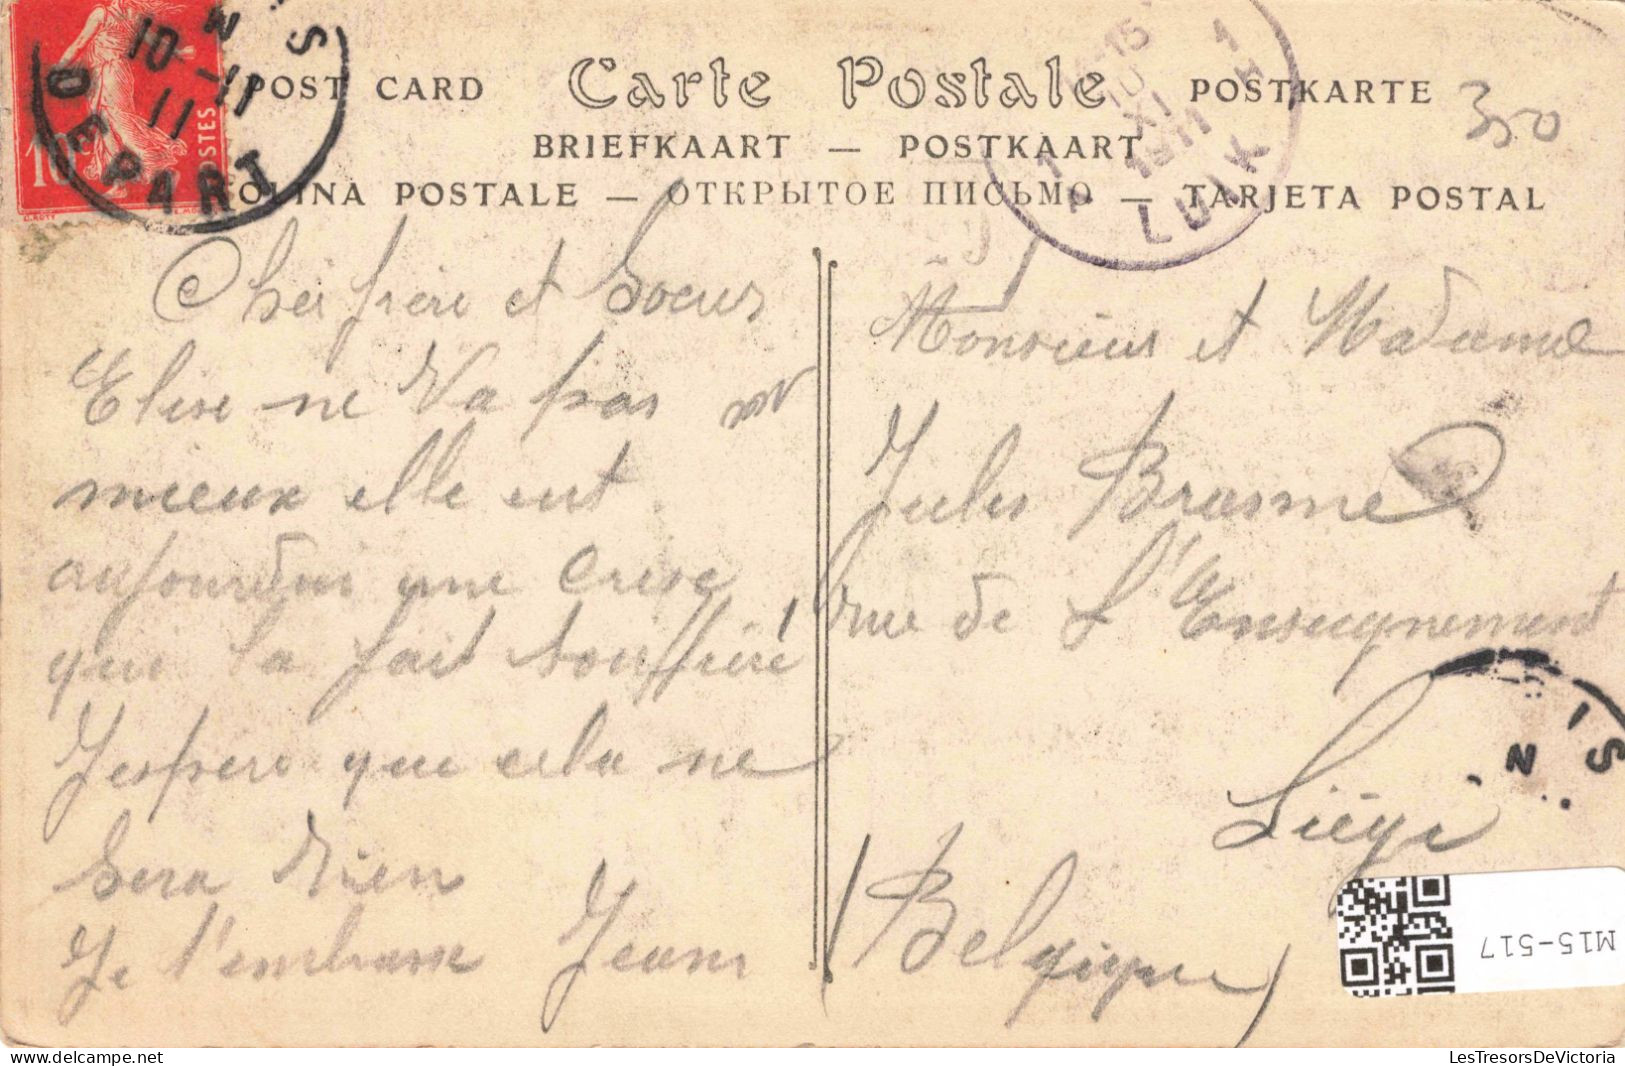 POST CARD Carte Postale POSTKARTE
BRIEFKAART — POSTKAART
POSTES
10
10 - 11
11
DEPART
OLINA POSTALE — ОТКРЫТОЕ ПИСЬМО — TARJETA POSTAL
10
XI
1911
LUIK
350
Cher frère et Soeur
Elise ne va pas
mieux elle eut
aujourdui une crise
qui la fait souffrire
J'espere que cela ne
Sera rien
Je t'embrasse Jeans
Monsieur et Madame
Jules Brasme
rue de L'Enseignement
Liége
(Belgique)
M15-517
LesTresorsDeVictoria